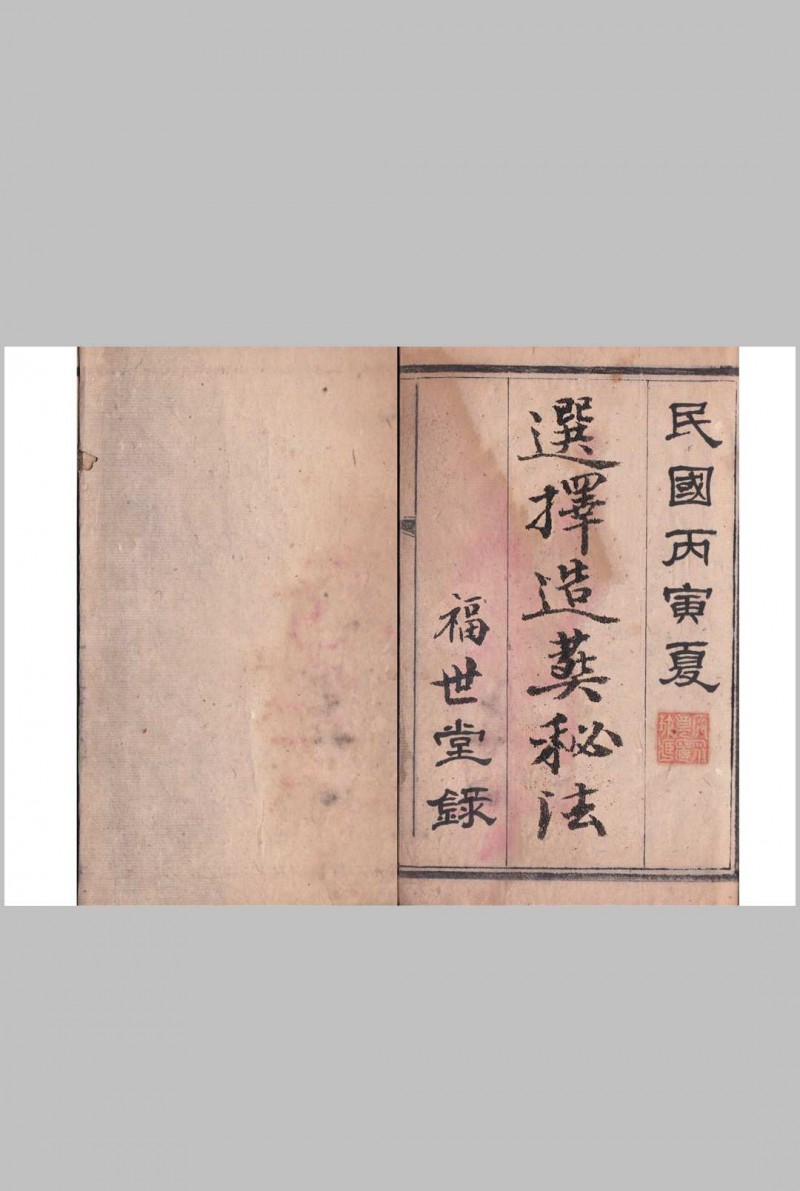 民國丙寅夏
選擇造葬秘法
福世堂錄